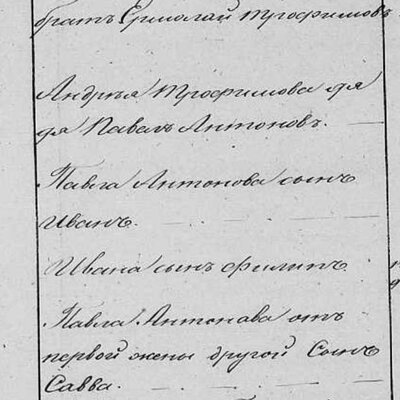 братъ Ермолай Трофимовъ
Андрѣя Трофимова дя
дя Павелъ Антоновъ.
Павла Антонова сынъ
Иванъ.
Ивана сынъ Филипъ
Павла Антонова отъ
первой жены другой Сынъ
Савва.